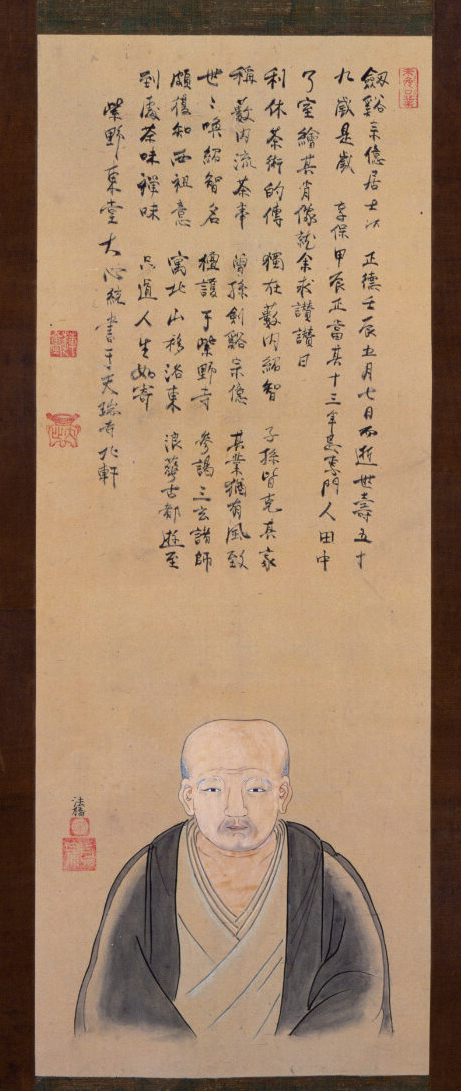 劔谿宗億居士以 正德壬辰五月七日而逝世壽五十
九歳是歳 享保甲辰正當其十三年 門人田中
了室繪其肖像就余求讃讃曰
利休茶術的傳 獨在藪内紹智 子孫皆克其家
稱藪内流茶事 曽孫劍谿宗億 其業猶有風致
世々喚紹智名 檀護于紫野寺 參謁三玄諸師
頗獲知西祖意 寓北山移洛東 浪華古都遊至
到處茶味禪味 只道人生如寄
紫野東堂大心統書于天瑞寺北軒
法橋